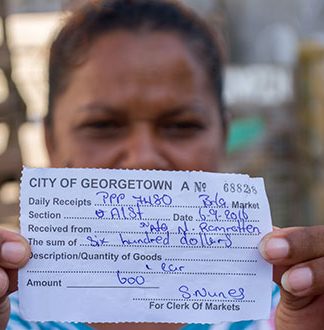 CITY OF GEORGETOWN A No 68828
Daily Receipts PPP 7480 Bda Market
Section Alst Date 6-9-2016
Received from N. Ramratten
The sum of Six hundred dollars
Description/Quantity of Goods
1 car
Amount 600
S. Nunes
For Clerk Of Markets